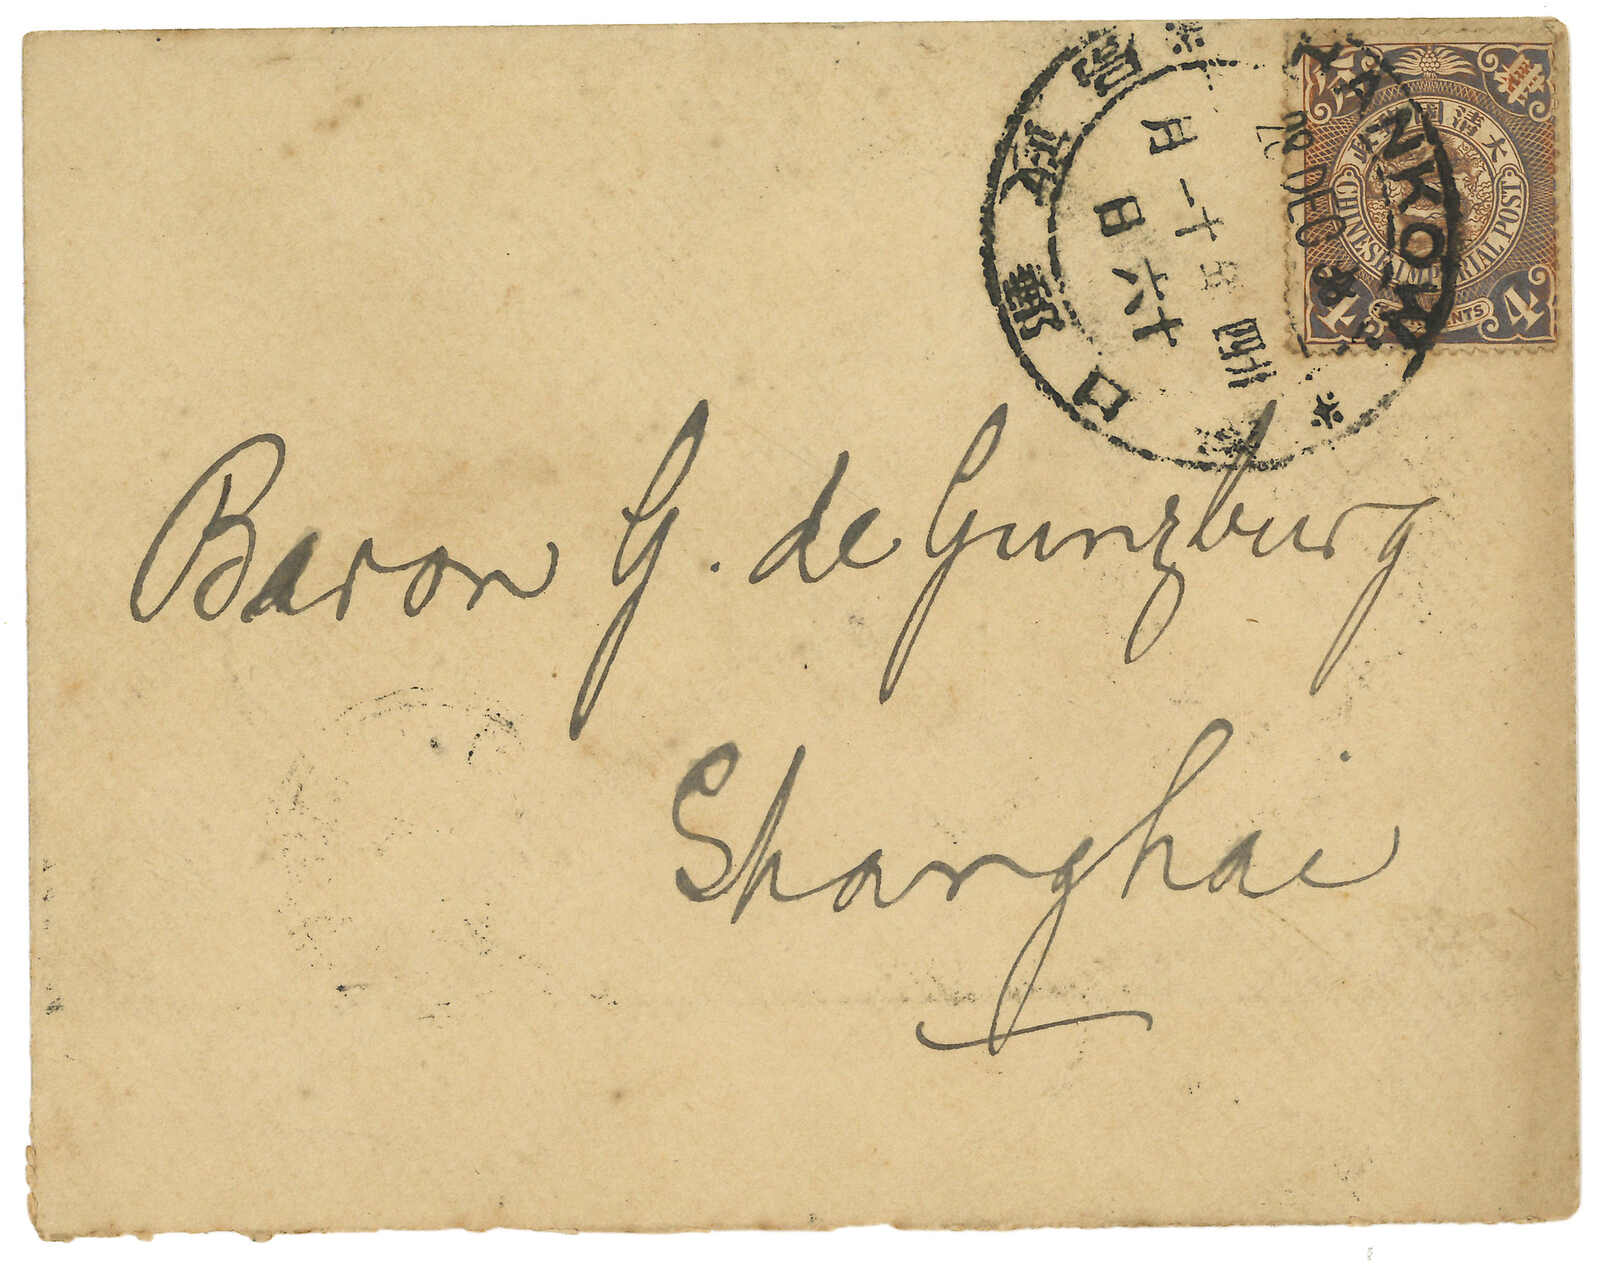 HANKOW
28 DEC
口郵政局
十一月
十六日
大清國郵政
CHINESE IMPERIAL POST
4 CENTS 4
Baron G. de Gunzburg
Shanghai